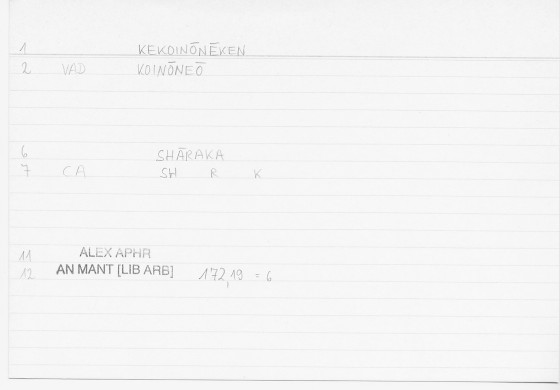 1 KEKOINŌNĒKEN
2 VAD KOINŌNEŌ
6 SHĀRAKA
7 CA SH R K
11 ALEX APHR
12 AN MANT [LIB ARB] 172,19 = 6